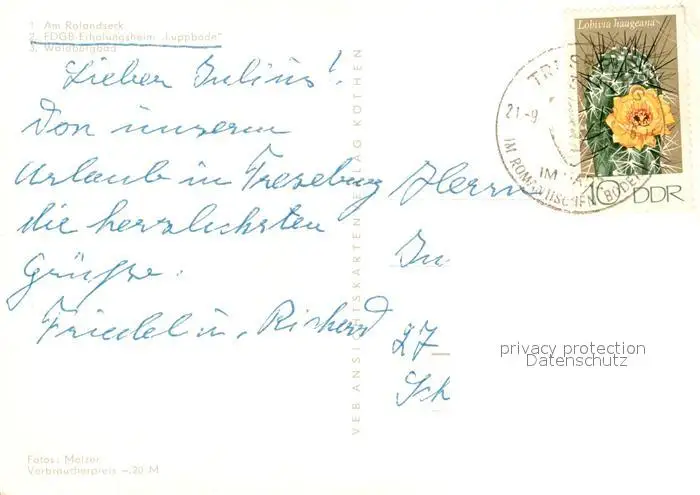 1. Am Rolandseck
2. FDGB-Erholungsheim „Luppbode"
3. Waldburgbad
Lieber Julius!
Von unserem
Urlaub in Treseburg
die herzlichsten
Grüße.
Friedel u. Richard
Fotos: Melzer
Verbraucherpreis –.20 M
VEB ANSICHTSKARTENVERLAG KÖTHEN
Lobivia haageana
10 DDR
21.-9
IM
IM ROMANTISCHEN BODE
Herrn
Ju
27
Sch
privacy protection
Datenschutz